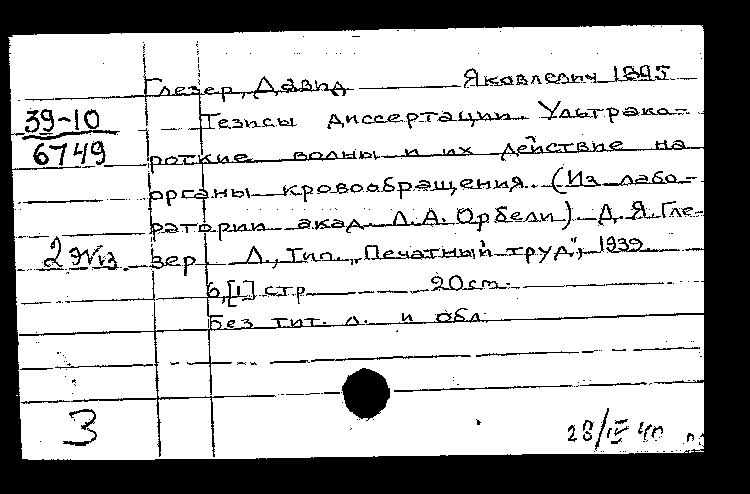 Глезер, Давид Яковлевич 1895
39-10 Тезисы диссертации. Ультрако-
6749 роткие волны и их действие на
органы кровообращения. (Из лабо-
ратории акад. Л.А. Орбели) Д.Я. Гле-
2 экз. зер Л., Тип. "Печатный труд", 1939.
6,[1] стр 20 cm.
Без тит. л. и обл.
3
28/IV 40